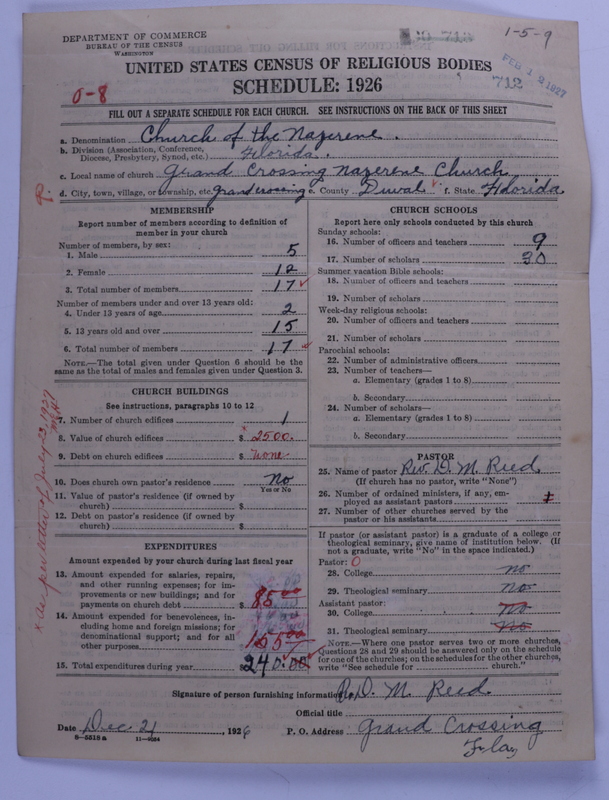 DEPARTMENT OF COMMERCE
BUREAU OF THE CENSUS
WASHINGTON
1-5-9
FEB 12 1927
712
UNITED STATES CENSUS OF RELIGIOUS BODIES
SCHEDULE: 1926
0-8
FILL OUT A SEPARATE SCHEDULE FOR EACH CHURCH. SEE INSTRUCTIONS ON THE BACK OF THIS SHEET
a. Denomination Church of the Nazerene.
b. Division (Association, Conference, Diocese, Presbytery, Synod, etc.) Florida.
c. Local name of church Grand Crossing Nazerene Church
d. City, town, village, or township, etc. Grand crossing e. County Duval f. State Florida
MEMBERSHIP
Report number of members according to definition of
member in your church
Number of members, by sex:
1. Male 5
2. Female 12
3. Total number of members 17
Number of members under and over 13 years old:
4. Under 13 years of age 2
5. 13 years old and over 15
6. Total number of members 17
NOTE.—The total given under Question 6 should be
the same as the total of males and females given under Question 3.
CHURCH BUILDINGS
See instructions, paragraphs 10 to 12
7. Number of church edifices 1
8. Value of church edifices $ 2500.
9. Debt on church edifices $ none
10. Does church own pastor's residence no
Yes or No
11. Value of pastor's residence (if owned by
church) $
12. Debt on pastor's residence (if owned by
church) $
x As per letter of July 23, 1927
EXPENDITURES
Amount expended by your church during last fiscal year
13. Amount expended for salaries, repairs,
and other running expenses; for im-
provements or new buildings; and for
payments on church debt $ 85.00
14. Amount expended for benevolences, in-
cluding home and foreign missions; for
denominational support; and for all
other purposes 155.00
15. Total expenditures during year $ 240.00
CHURCH SCHOOLS
Report here only schools conducted by this church
Sunday schools:
16. Number of officers and teachers 9
17. Number of scholars 30
Summer vacation Bible schools:
18. Number of officers and teachers
19. Number of scholars
Week-day religious schools:
20. Number of officers and teachers
21. Number of scholars
Parochial schools:
22. Number of administrative officers
23. Number of teachers—
a. Elementary (grades 1 to 8)
b. Secondary
24. Number of scholars—
a. Elementary (grades 1 to 8)
b. Secondary
PASTOR
25. Name of pastor Rev. D. M. Reed
(If church has no pastor, write "None")
26. Number of ordained ministers, if any, em-
ployed as assistant pastors
27. Number of other churches served by the
pastor or his assistants
If pastor (or assistant pastor) is a graduate of a college or
theological seminary, give name of institution below. (If
not a graduate, write "No" in the space indicated.)
Pastor: 0
28. College no
29. Theological seminary no
Assistant pastor:
30. College no
31. Theological seminary no
NOTE.—Where one pastor serves two or more churches,
Questions 28 and 29 should be answered only on the schedule
for one of the churches; on the schedules for the other churches,
write "See schedule for church."
Signature of person furnishing information D. M. Reed
Official title
Date Dec 21, 1926 P. O. Address Grand Crossing
Fla
8-5518a 11-9054